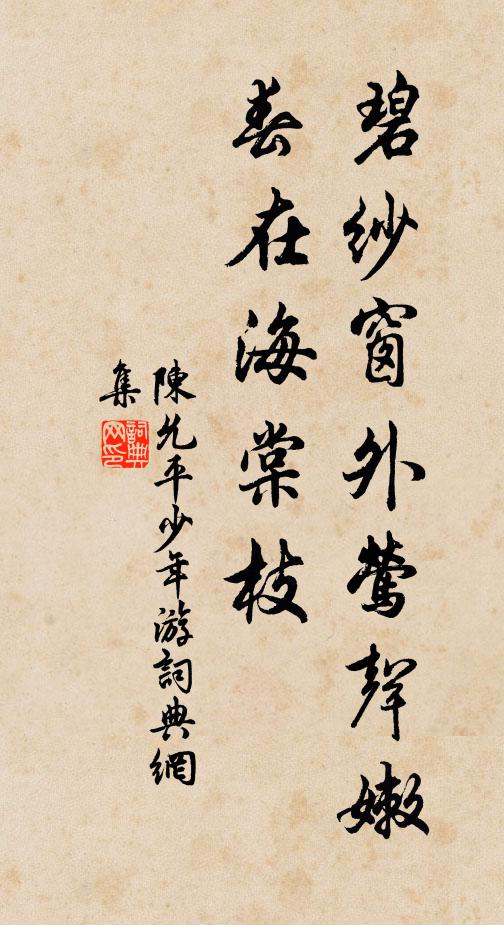 碧紗窗外鶯聲嫩
春在海棠枝
陳允平少年游詞典網
集
詞典网印